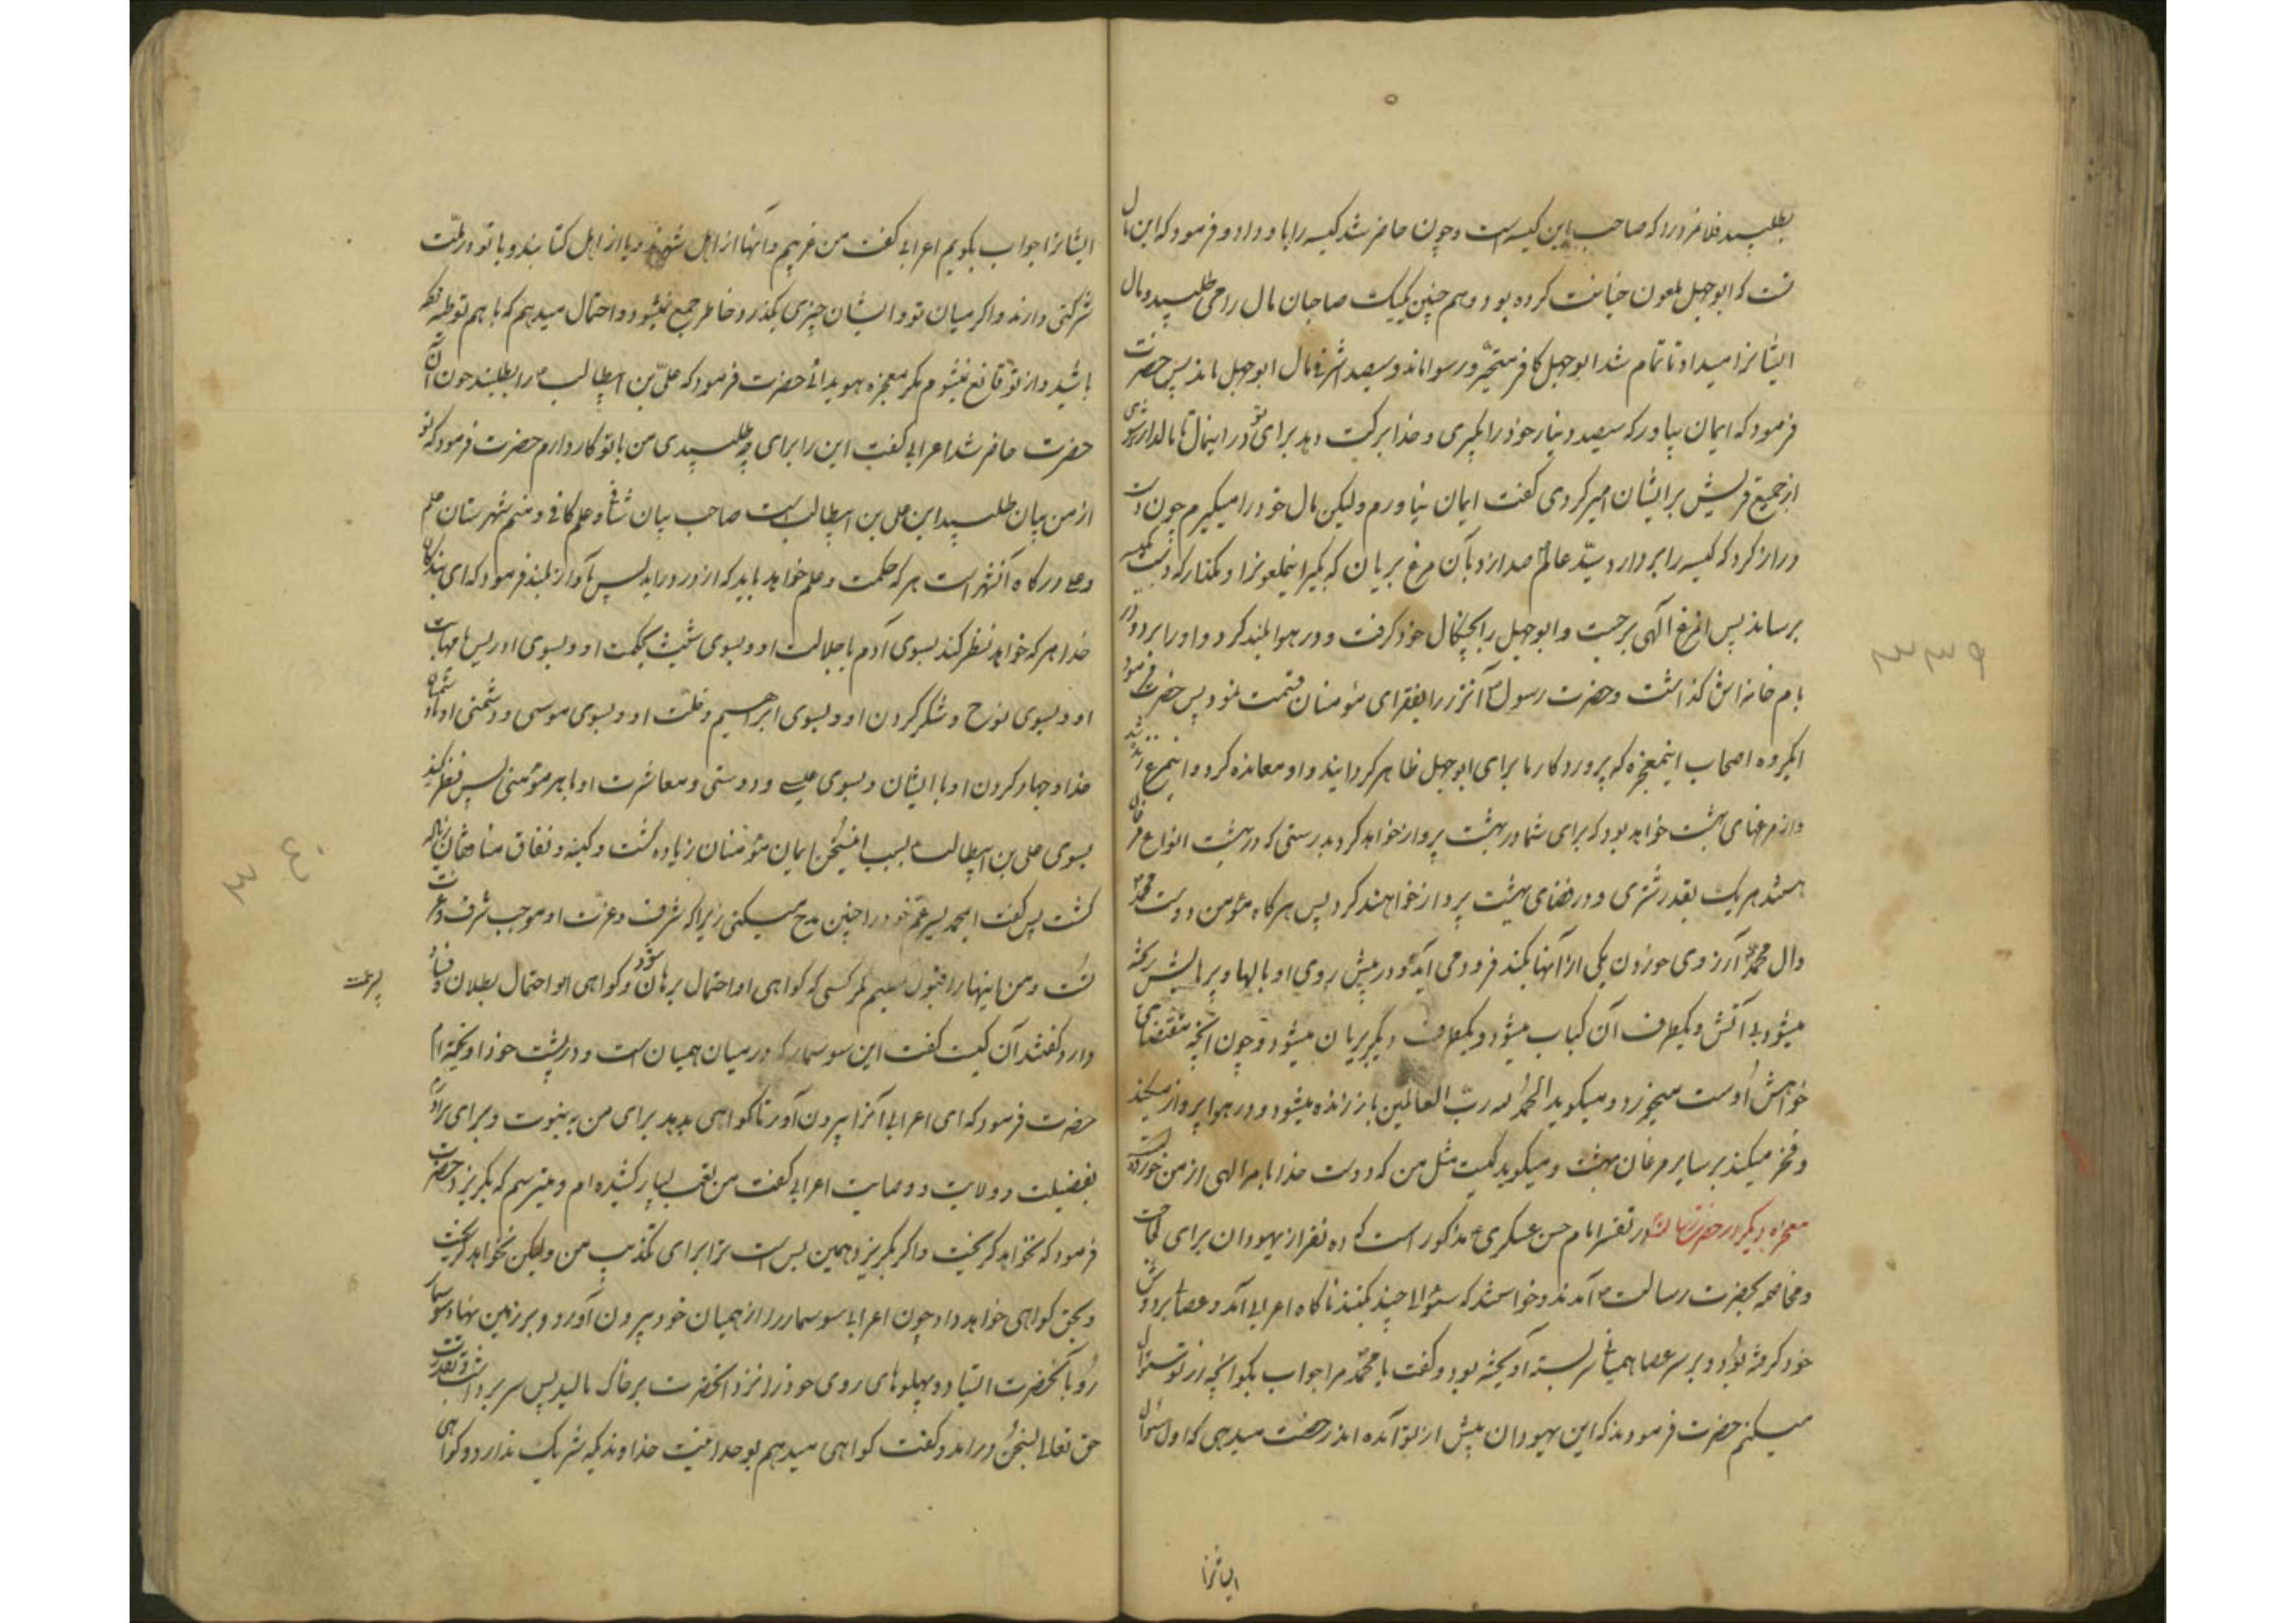 بطلبید فلانمرد را که صاحب این کیسه است و چون حاضر شد کیسه را باو داد و فرمود که این مال
تست که ابوجهل ملعون خیانت کرده بود و هم چنین یک یک صاحبان مال را می طلبید و مال
ایشانرا میداد تا تمام شد ابوجهل کافر متحیّر و رسوا ماند و سیصد اشرفی مال ابوجهل ماند پس حضرت
فرمود که ایمان بیاور که سیصد دینار خود را بگیری و خدا برکت دهد برای تو در اینمال تا مالدارتر شوی
از جمیع قریش بر ایشان امیر کردی گفت ایمان نیاورم ولیکن مال خود را میگیرم چون دست
دراز کرد که کیسه را بردارد سیّد عالم صدا زد بآن مرغ بریان که بگیر اینملعونرا و مگذار که دست بکیسه
برساند پس آنمرغ بقدرت الهی برجست و ابوجهل را بچنگال خود گرفت و در هوا بلند کرد و او را برد و در
بام خانه اش گذاشت و حضرت رسول ص آنزر را بفقرای مؤمنان قسمت نمود پس حضرت فرمود
ایگروه اصحاب اینمعجزه که پروردگار ما برای ابوجهل ظاهر گردانید و او معانده کرد و اینمرغ زنده شد
و از مرغهای بهشت خواهد بود که برای شما در بهشت پرواز خواهد کرد بدرستی که در بهشت انواع مرغان
هستند هر یک بقدر شتری و در فضای بهشت پرواز خواهند کرد پس هرگاه مؤمن دوست محمد ص
وال محمد ع آرزوی خوردن یکی از آنها بکند فرود می آید و در پیش روی او بالها و پرهایش ریخته
میشود بی آتش و یکطرف آن کباب میشود و یکطرف دیگر بریان میشود و چون آنچه مقتضای
خواهش اوست میخورد و میگوید الحمد لله ربّ العالمین باز زنده میشود و در هوا پرواز میکند
و فخر میکند بر سایر مرغان بهشت و میگوید کیست مثل من که دوست خدا بامر الهی از من خورده است
معجزه دیگر در تفسیر امام حسن عسکری ع مذکور است که ده نفر از یهودان برای لجاجت
و مخاصمه بحضرت رسالت ص آمدند و خواستند که سئوالی چند بکنند ناگاه اعرابی آمد و عصا بر دوش
خود گرفته بود و بر سر عصا همیانی سر بسته آویخته بود و گفت یا محمد مرا جواب بگو آنچه از تو سئوال
میکنم حضرت فرمودند که این یهودان پیش از تو آمده اند رخصت میدهی که اول سئوال
ایشانرا
ایشانرا جواب بگویم اعرابی گفت من غریبم و آنها از اهل شهرند و یا از اهل کتابند و با تو در ملّت
شرکتی دارند و اگر میان تو و ایشان چیزی بگذرد خاطر جمع نمیشود و احتمال میدهم که با هم توطئه کرده
باشید و از تو قانع نمیشوم مگر معجزه هویدائی حضرت فرمود که علیّ بن ابیطالب ع را بطلبید چون آن
حضرت حاضر شد اعرابی گفت این را برای چه طلبیدی من با تو کار دارم حضرت فرمود که تو
از من بیان طلبیدی این علی بن ابیطالب است صاحب بیان شافی و علم کافی و منم شهرستان علم
و علی درگاه آنشهر است هر که حکمت و علم خواهد باید که از در دراید پس بآواز بلند فرمود که ای بندگان
خدا هر که خواهد نظر کند بسوی آدم با جلالت او و بسوی شیث بحکمت او و بسوی ادریس با مهابت
او و بسوی نوح و شکر کردن او و بسوی ابراهیم و خلّت او و بسوی موسی و دشمنی او با دشمنان
خدا و جهاد کردن او با ایشان و بسوی عیسی و دوستی و معاشرت او با هر مؤمنی پس نظر کند
بسوی علی بن ابیطالب ع بسبب اینسخن ایمان مؤمنان زیاده گشت و کینه و نفاق منافقان زیاده
گشت پس گفت ایمحمد پسر عمّ خود را چنین مدح میکنی زیرا که شرف و عزّت او موجب شرف و عزّت
تست و من اینها را قبول نمیکنم مگر کسی که گواهی او احتمال برهان شود و گواهی او احتمال بطلان و فساد
دارد گفتند آن کیست گفت این سوسمار که در میان همیان است و در پشت خود آویخته ام
حضرت فرمود که ای اعرابی آنرا بیرون آور تا گواهی بدهد برای من به نبوت و برای برادرم
بفضیلت و ولایت و وصایت اعرابی گفت من تعب بسیار کشیده ام و میترسم که بگریزد حضرت
فرمود که نخواهد گریخت و اگر بگریزد همین بس است ترا برای تکذیب من ولیکن نخواهد گریخت
و بحق گواهی خواهد داد چون اعرابی سوسمار را از همیان خود بیرون آورد و بر زمین نهاد سوسمار
رو بآنحضرت ایستاد و پهلوهای روی خود را نزد آنحضرت بر خاک مالید پس سر برداشت و بقدرت
حق تعالی بسخن درامد و گفت گواهی میدهم بوحدانیّت خداوندیکه شریک ندارد و گواهی
۳۳۹
۳۴۰